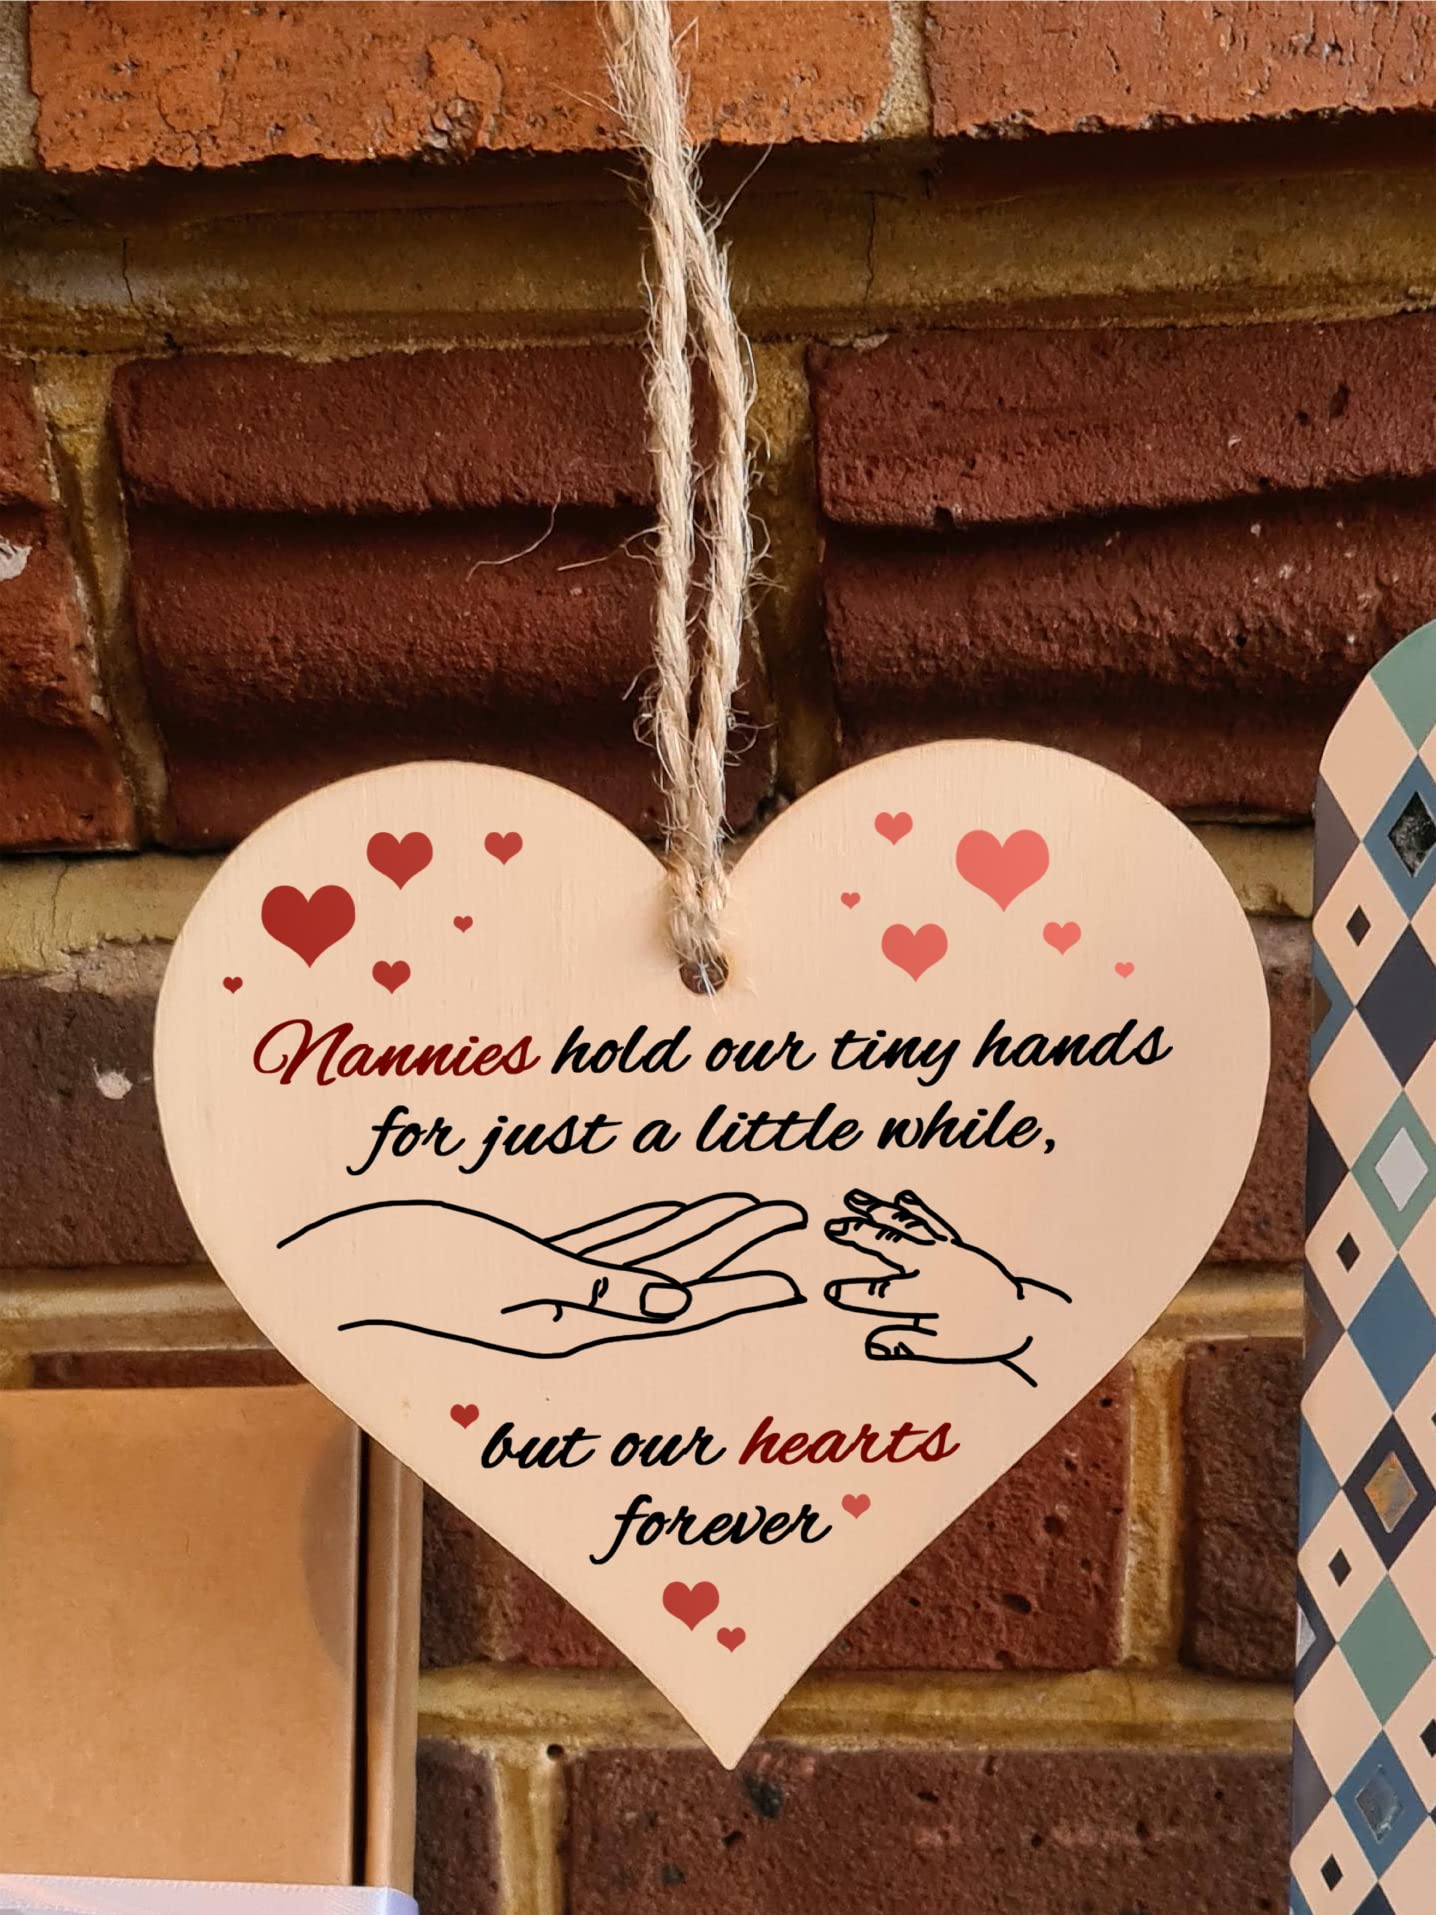 Nannies hold our tiny hands
for just a little while,
but our hearts
forever